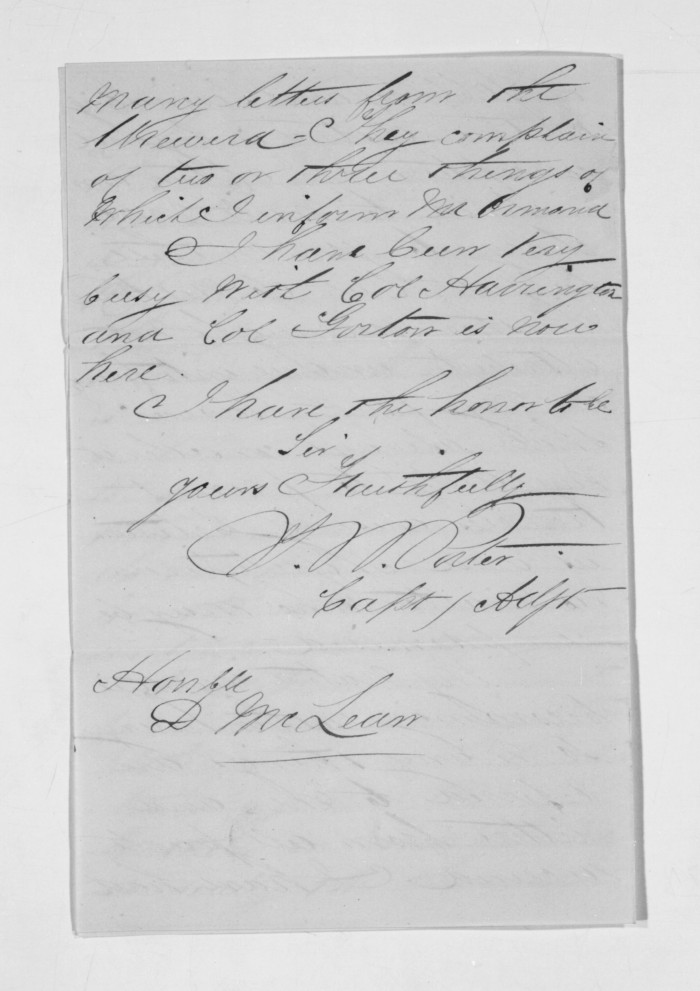 many letters from the
Urewera - They complain
of two or three things of
which I inform Mr Ormond
I have been very
busy with Col Harrington
and Col Gorton is now
here.
I have the honor to be
Sir
yours Faithfully
Porter
Capt / Adjt
Honble
D McLean